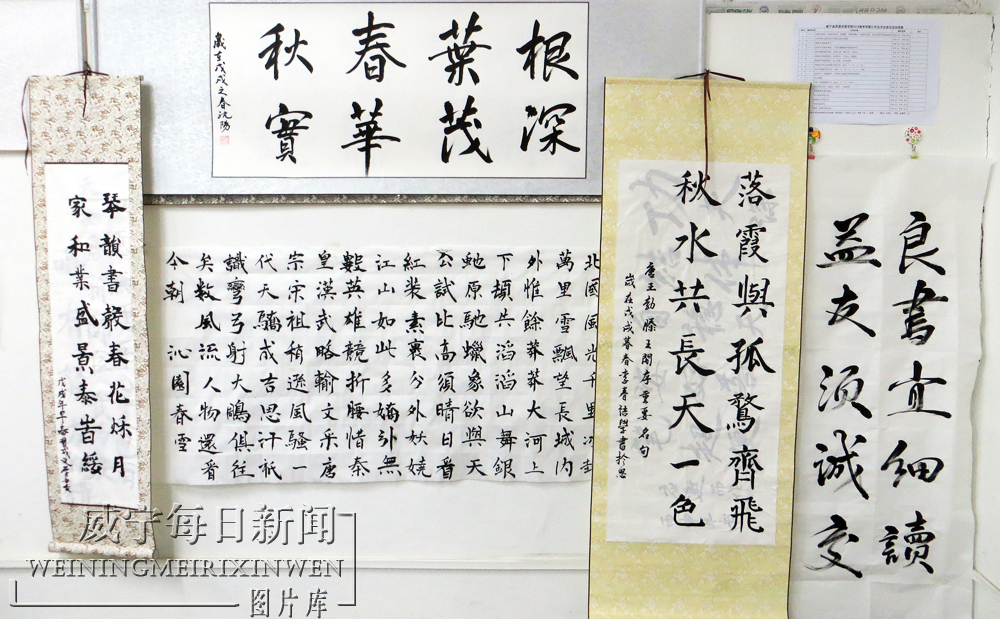 根深
葉茂
春華
秋實
歲在戊戌之春沈陽
琴韻書聲春花秋月
家和業盛景泰
北國風光千里冰封
萬里雪飄望長城內
外惟餘莽莽大河上
下頓失滔滔山舞銀
蛇原馳蠟象欲與天
公試比高須晴日看
紅装素裹分外妖嬈
江山如此多嬌引無
數英雄競折腰惜秦
皇漢武略輸文采唐
宗宋祖稍遜風騷一
代天驕成吉思汗祇
識彎弓射大鵰俱往
矣數風流人物還看
今朝 沁園春雪
落霞與孤鶩齊飛
秋水共長天一色
唐王勃滕王閣序重要名句
歲在戊戌暮春李春
良書宜细讀
益友须诚交
威宁每日新闻
WEININGMEIRIXINWEN
图片库